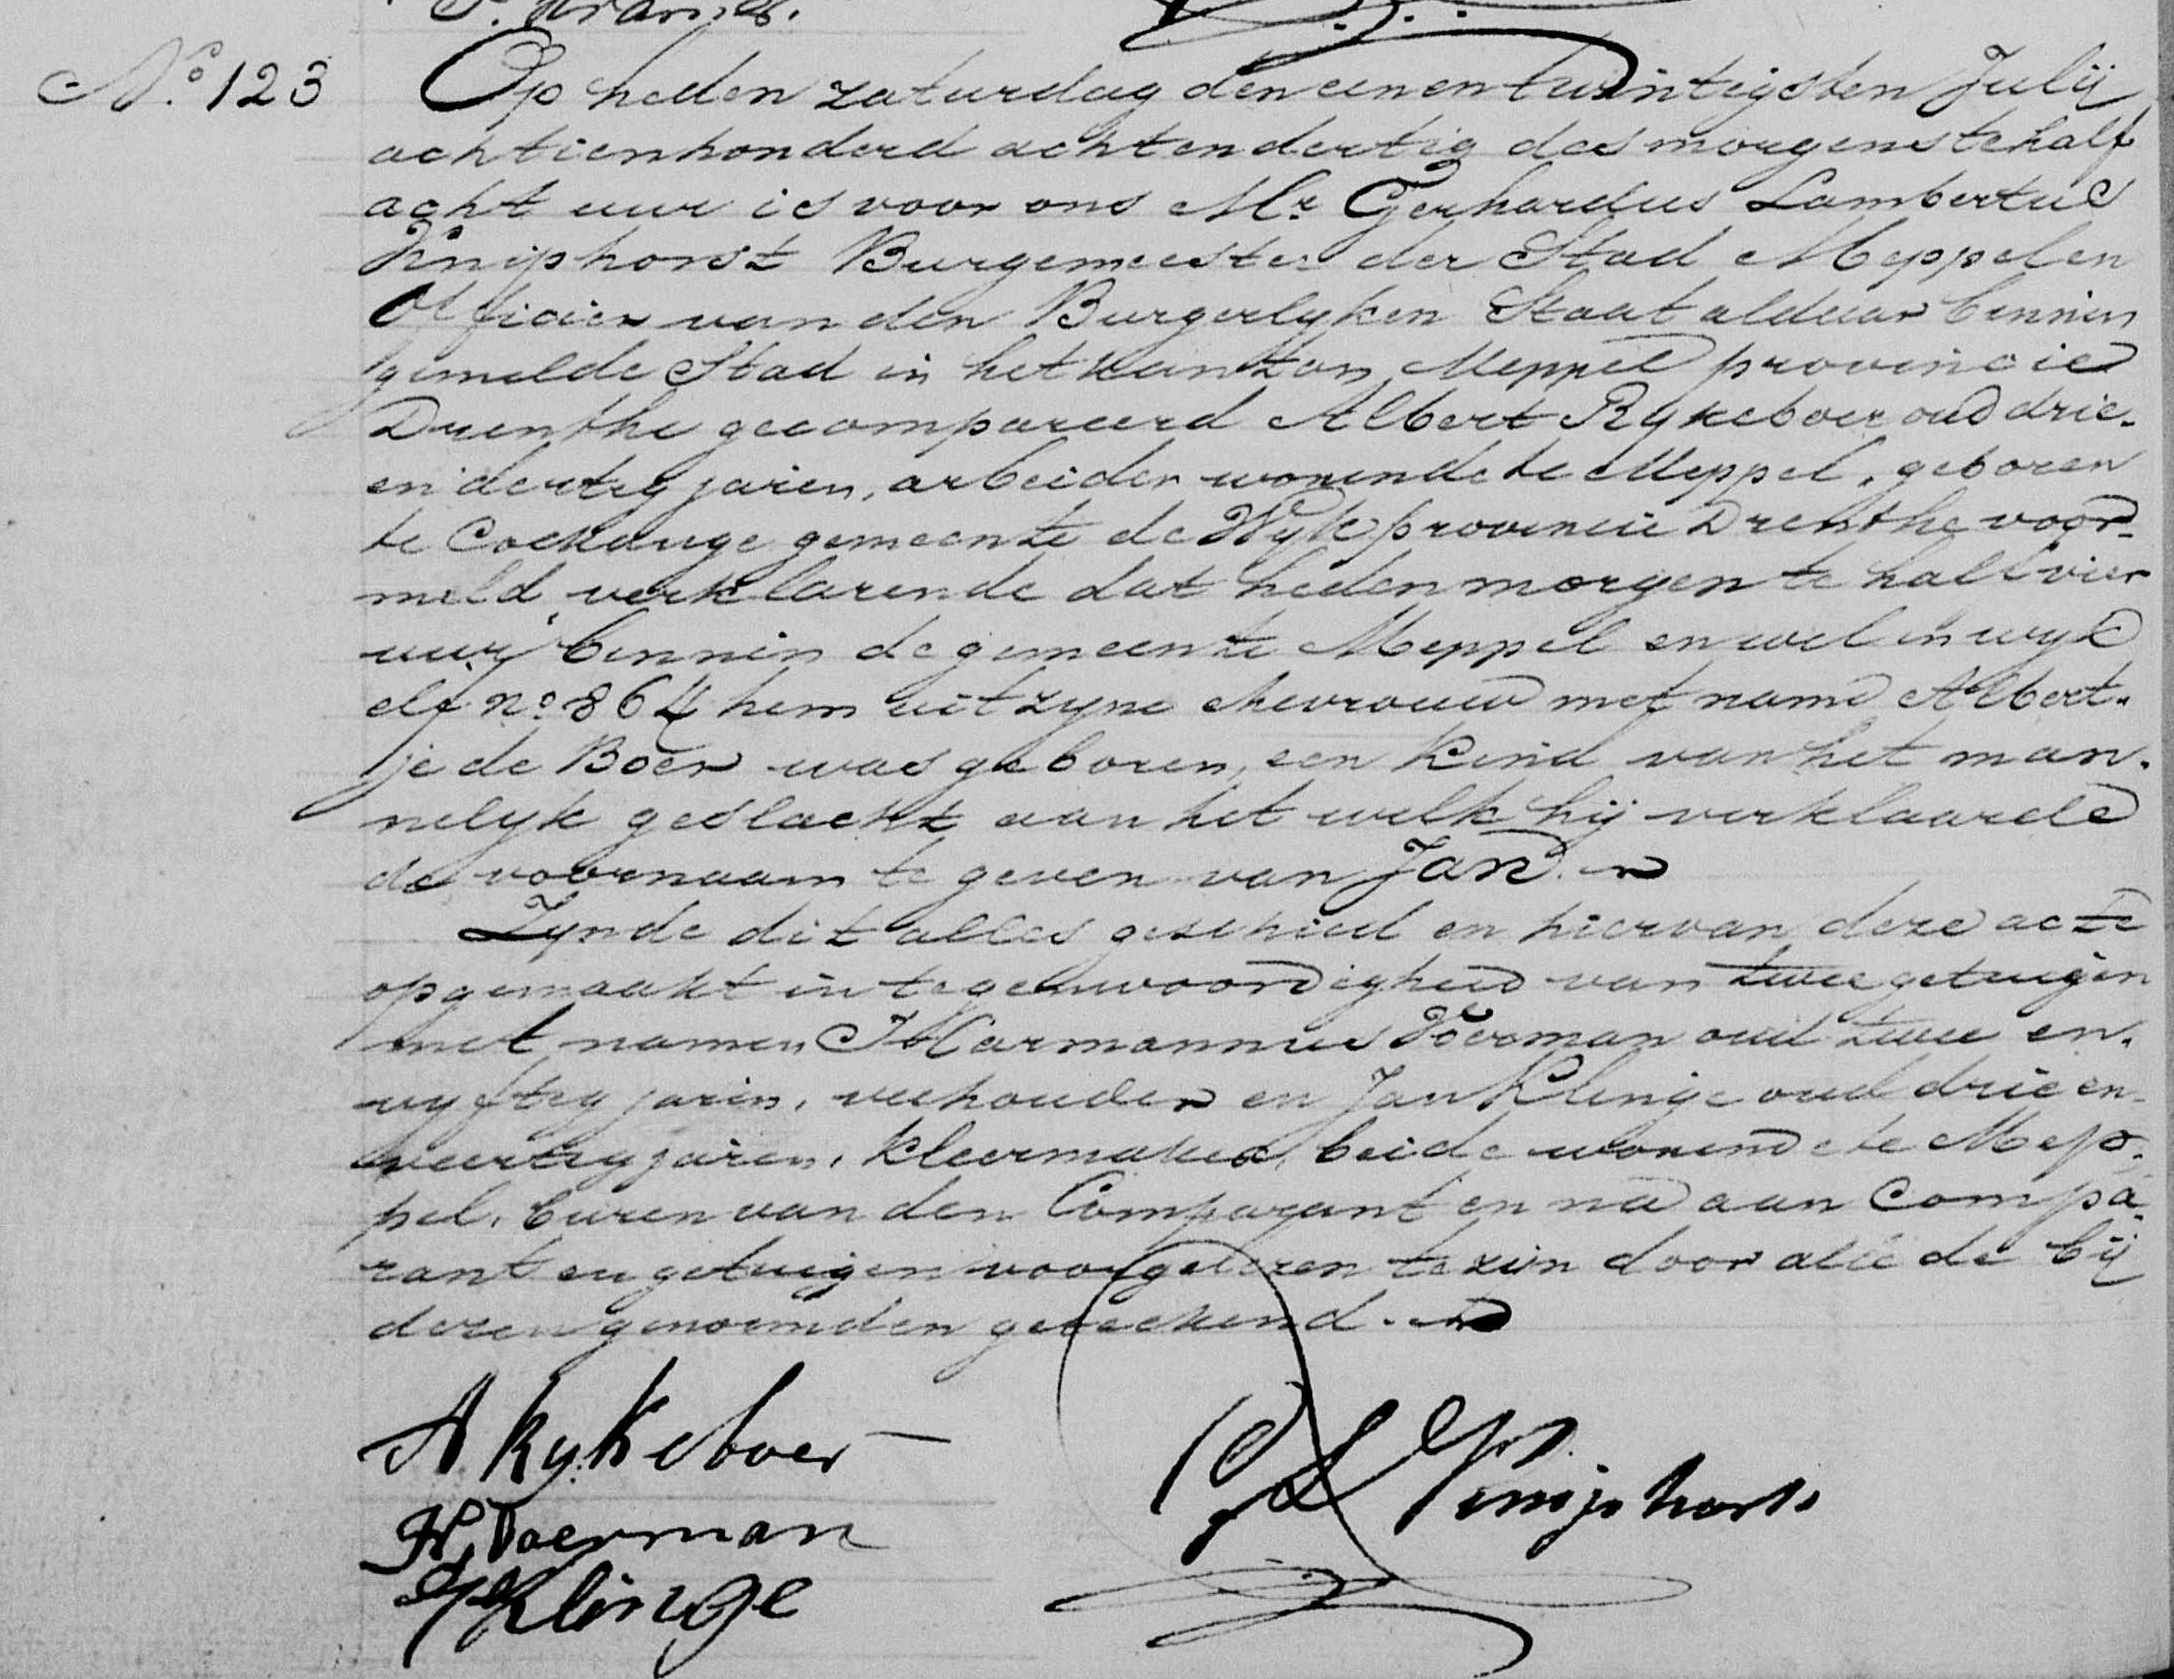 N.o 123
Op heden zaturdag den eenentwintigsten Julij
achtienhonderd achtendertig des morgens te half
acht uur is voor ons Mr. Gerhardus Lambertus
Kniphorst Burgemeester der Stad Meppel en
Officier van den Burgerlyken Staat aldaar binnen
gemelde Stad in het kanton Meppel provincie
Drenthe gecompareerd Albert Rykeboer oud drie-
en dertig jaren, arbeider wonende te Meppel, geboren
te Coekange gemeente de Wyk provincie Drenthe voor-
meld verklarende dat heden morgen te half vier
uur, binnen de gemeente Meppel en wel in wyk
elf no. 864 hem uit zyne ehevrouw met name Albert-
je de Boer was geboren, een kind van het man-
nelyk geslacht aan het welk hij verklaarde
de voornaam te geven van Jan.
Zynde dit alles geschied en hiervan deze acte
opgemaakt in tegenwoordigheid van twee getuigen
met namen Harmannus Voerman oud twee en-
vyftig jaren, veehouder en Jan Klinge oud drie en-
veertig jaren, kleermaker, beide wonende te Mep-
pel, buren van den Comparant en na aan Compa-
rant en getuigen voorgelezen te zijn door alle de bij
dezen genoemden geteekend.
A Rykeboer
G L Kniphorst
H. Voerman
J Klinge